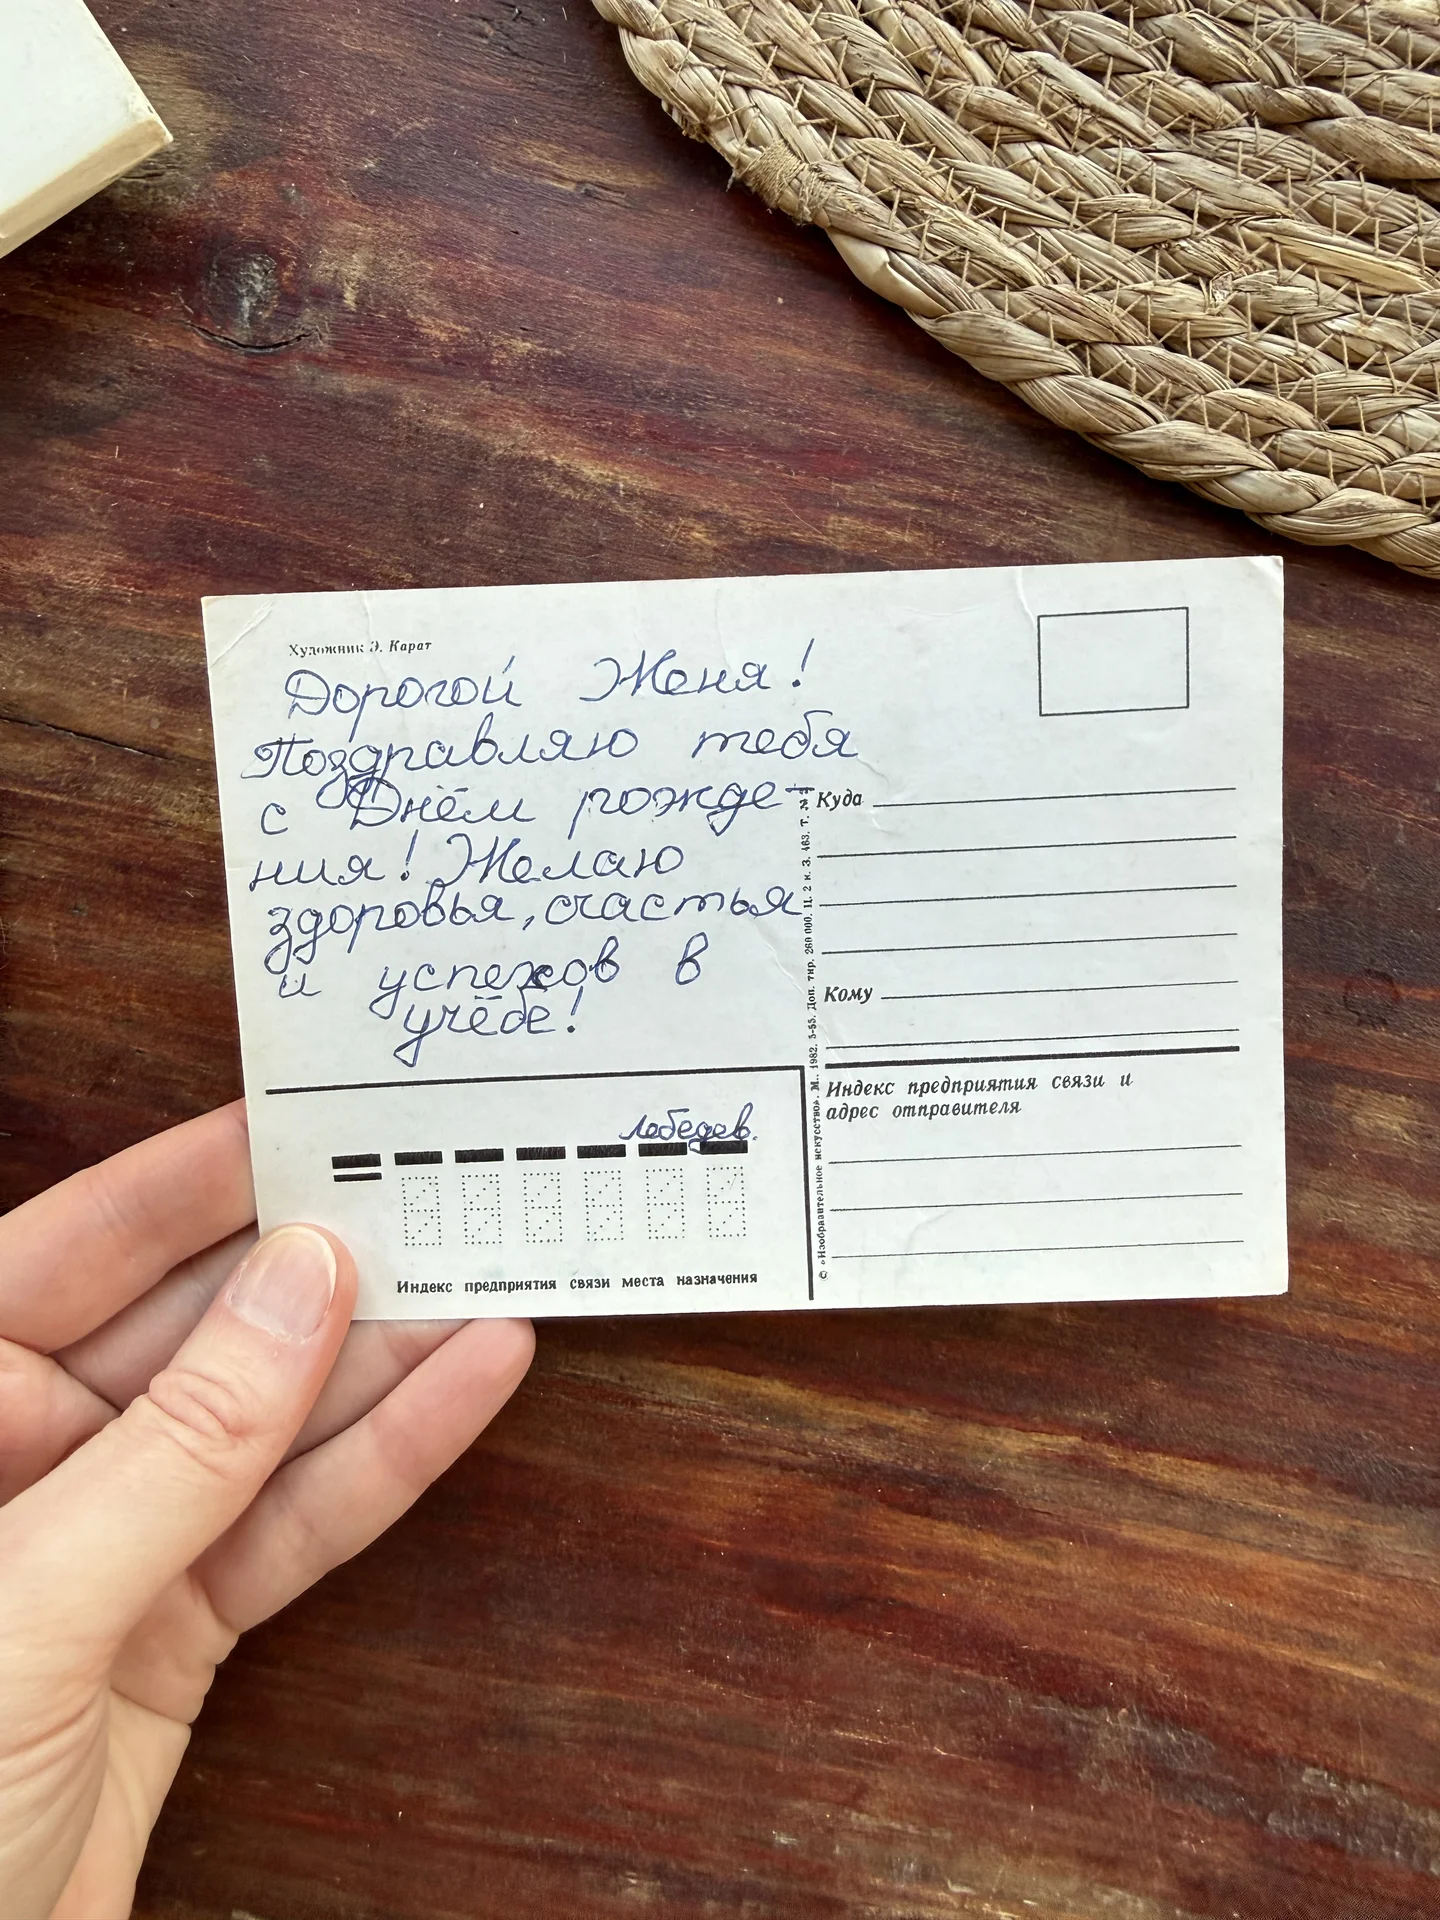 Художник Э. Карат
Дорогой Женя!
Поздравляю тебя
с Днём рожде-
ния! Желаю
здоровья, счастья
и успехов в
учёбе!
Лебедев.
Индекс предприятия связи места назначения
© «Изобразительное искусство». М., 1982. 5-55. Доп. тир. 260 000. Ц. 2 к. З. 463. Т. №
Куда
Кому
Индекс предприятия связи и
адрес отправителя